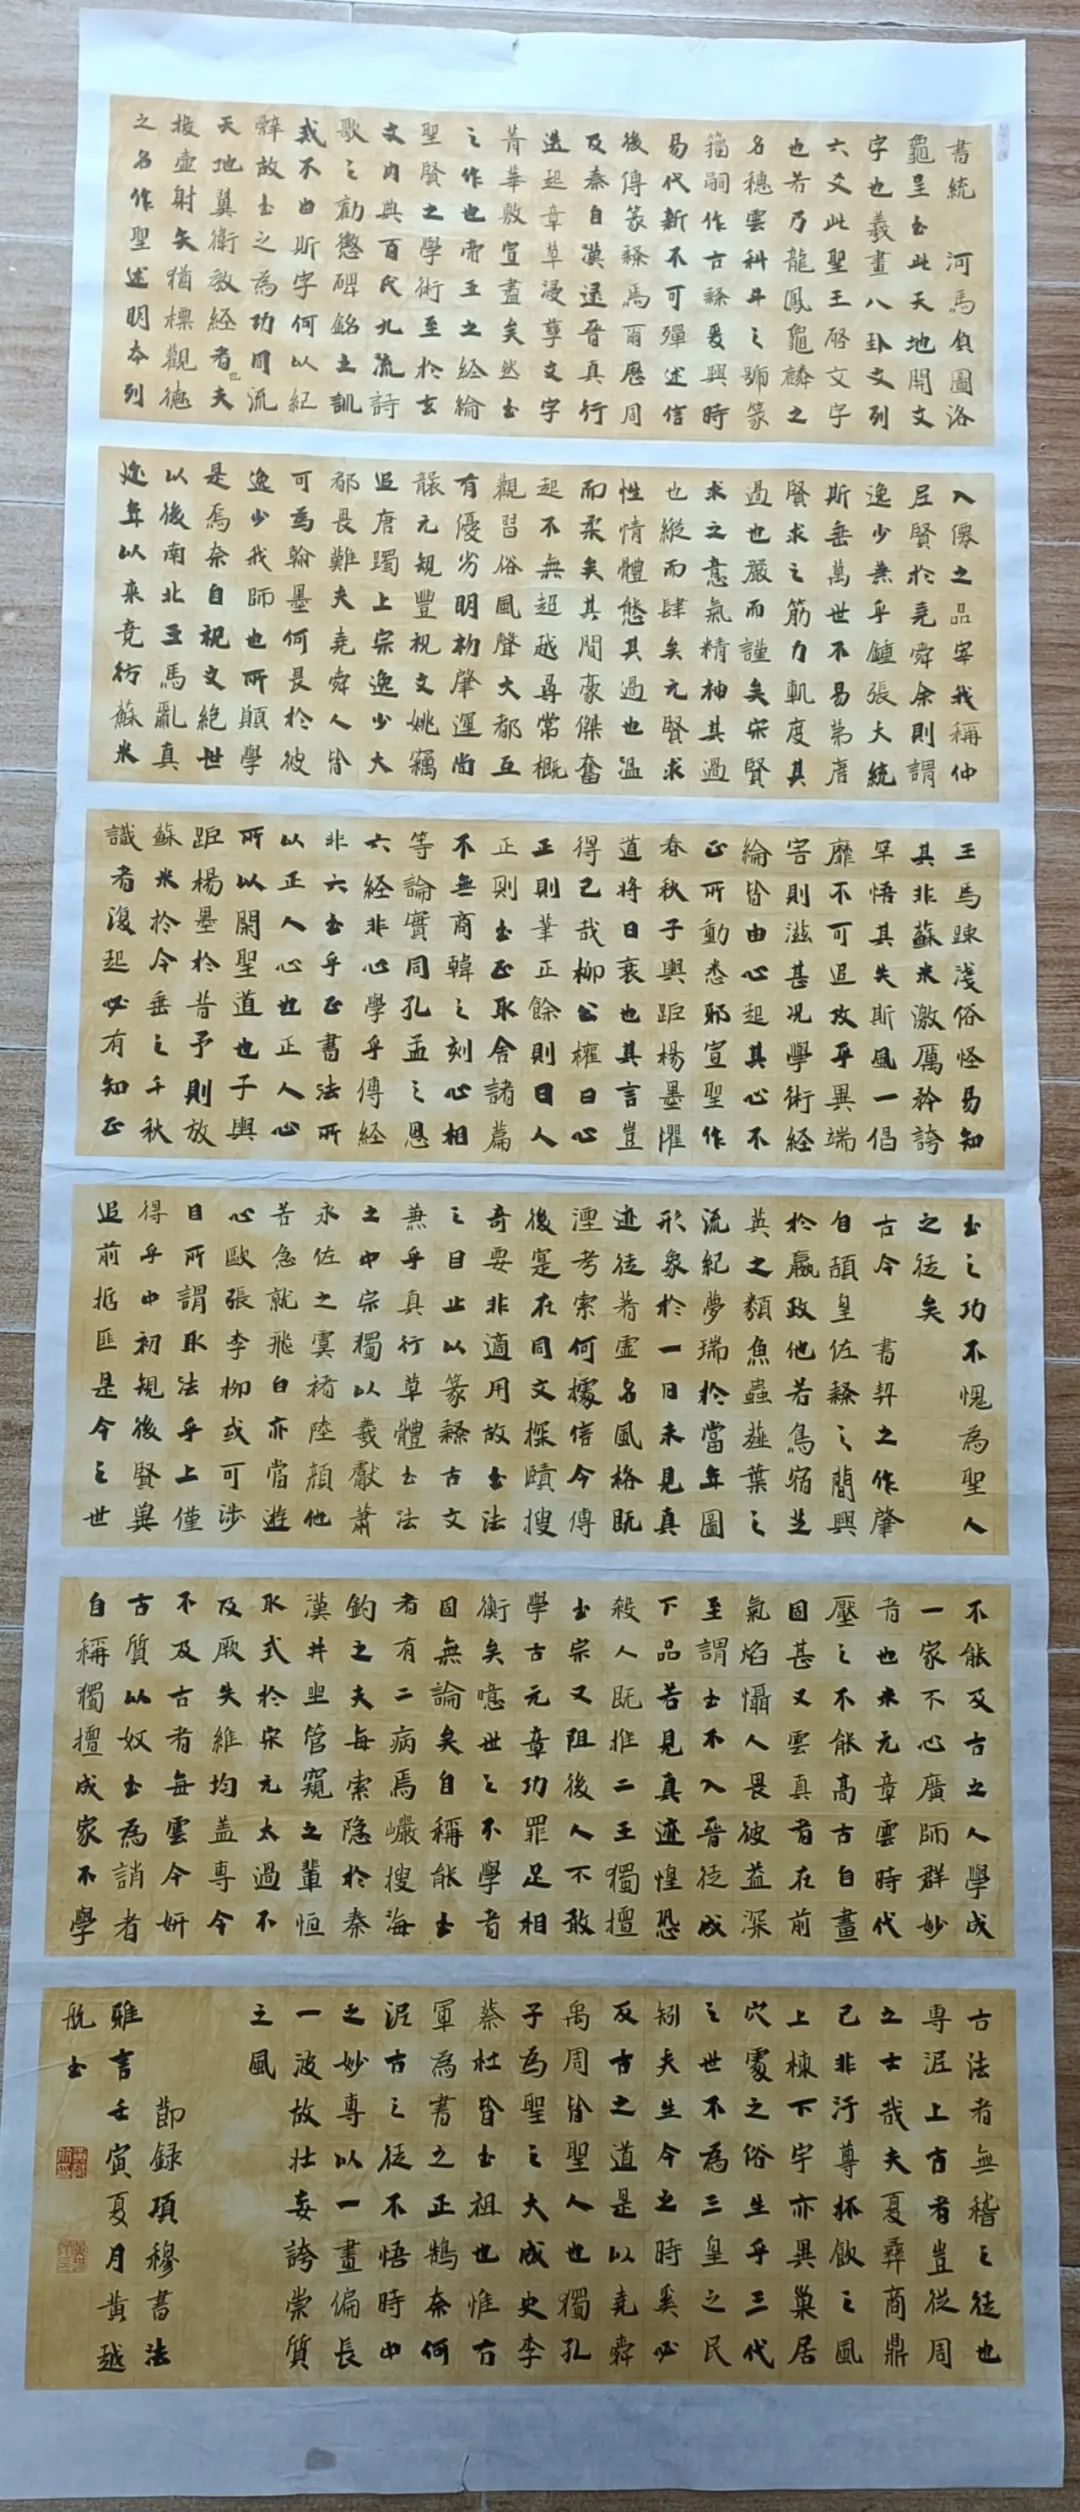 書統　河馬負圖洛
龜呈書此天地開文
字也羲畫八卦文列
六爻此聖王啓文字
也若乃龍鳳龜麟之
名穗雲科斗之號篆
籀嗣作古隸爰興時
易代新不可殫述信
後傳篆隸焉爾歷周
及秦自漢逮晉真行
迭起章草浸孳文字
菁華敷宣盡矣然書
之作也帝王之經綸
聖賢之學術至於玄
文內典百氏九流詩
歌之勸懲碑銘之訓
戒不由斯字何以紀
辭故書之為功同流
天地翼衛教經者夫
投壺射矢猶標觀德
之名作聖述明本列
入僊之品宰我稱仲
尼賢於堯舜余則謂
逸少兼乎鍾張大統
斯垂萬世不易第唐
賢求之筋力軌度其
過也嚴而謹矣宋賢
求之意氣精神其過
也縱而肆矣元賢求
性情體態其過也溫
而柔矣其間豪傑奮
起不無超越尋常概
觀習俗風聲大都互
有優劣明初肇運尚
襲元規豐祝文姚竊
追唐躅上宗逸少大
都畏難夫堯舜人皆
可為翰墨何畏於彼
逸少我師也所顚學
是焉奈自祝文絕世
以後南北王馬亂真
邇年以來競仿蘇米
王馬疎淺俗怪易知
其非蘇米激厲矜誇
罕悟其失斯風一倡
靡不可追攻乎異端
害則滋甚況學術經
綸皆由心起其心不
正所動悉邪宣聖作
春秋子輿距楊墨懼
道將日衰也其言豈
得已哉柳公權曰心
正則筆正餘則曰人
正則書正取舍諸篇
不無商韓之刻心相
等論實同孔孟之思
六經非心學乎傳經
非六書乎正書法所
以正人心也正人心
所以閑聖道也子輿
距楊墨於昔予則放
蘇米於今垂之千秋
識者復起必有知正
書之功不愧為聖人
之徒矣
古今　書契之作肇
自頡皇佐隸之簡興
於嬴政他若鳥宿芝
英之類魚蟲薤葉之
流紀夢瑞於當年圖
形象於一日未見真
迹徒著虛名風格既
湮考索何據信今傳
後寔在同文探賾搜
奇要非適用故書法
之目止以篆隸古文
兼乎真行草體書法
之中宗獨以羲獻蕭
永佐之虞褚陸顏他
若急就飛白亦當遊
心歐張李柳或可涉
目所謂取法乎上僅
得乎中初規後賢冀
追前拓匪是今之世
不能及古之人學成
一家不心廣師群妙
者也米元章雲時代
壓之不能高古自畫
固甚又雲真者在前
氣焰懾人畏彼益深
至謂書不入晉徒成
下品若見真迹惶恐
殺人既推二王獨擅
書宗又阻後人不敢
學古元章功罪足相
衡矣噫世之不學者
固無論矣自稱能書
者有二病焉巖搜海
釣之夫每索隱於秦
漢井坐管窺之輩恒
取式於宋元太過不
及厥失維均蓋專今
不及古者每雲今妍
古質以奴書為誚者
自稱獨擅成家不學
古法者無稽之徒也
專泥上古者豈從周
之士哉夫夏彝商鼎
已非汙尊抔飲之風
上棟下宇亦異巢居
穴處之俗生乎三代
之世不為三皇之民
矧夫生今之時奚必
反古之道是以堯舜
禹周皆聖人也獨孔
子為聖之大成史李
蔡杜皆書祖也惟右
軍為書之正鵠奈何
泥古之徒不悟時中
之妙專以一畫偏長
一波故壯妄誇崇質
之風
節錄項穆書法
雅言壬寅夏月黃越
航書